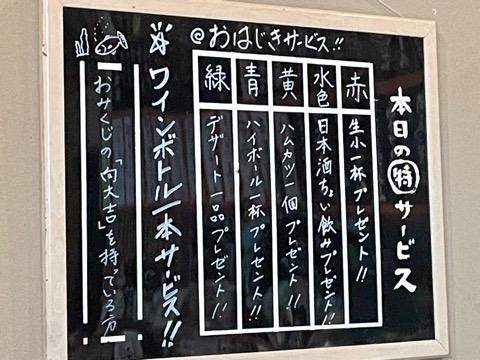 本日の㊕サービス
@おはじきサービス!!
赤 生小一杯プレゼント!!
水色 日本酒ちょい飲みプレゼント!!
黄 ハムカツ一個プレゼント!!
青 ハイボール一杯プレゼント!!
緑 デザート一品プレゼント!!
ワインボトル一本サービス!!
おみくじの「向大吉」を持っている方